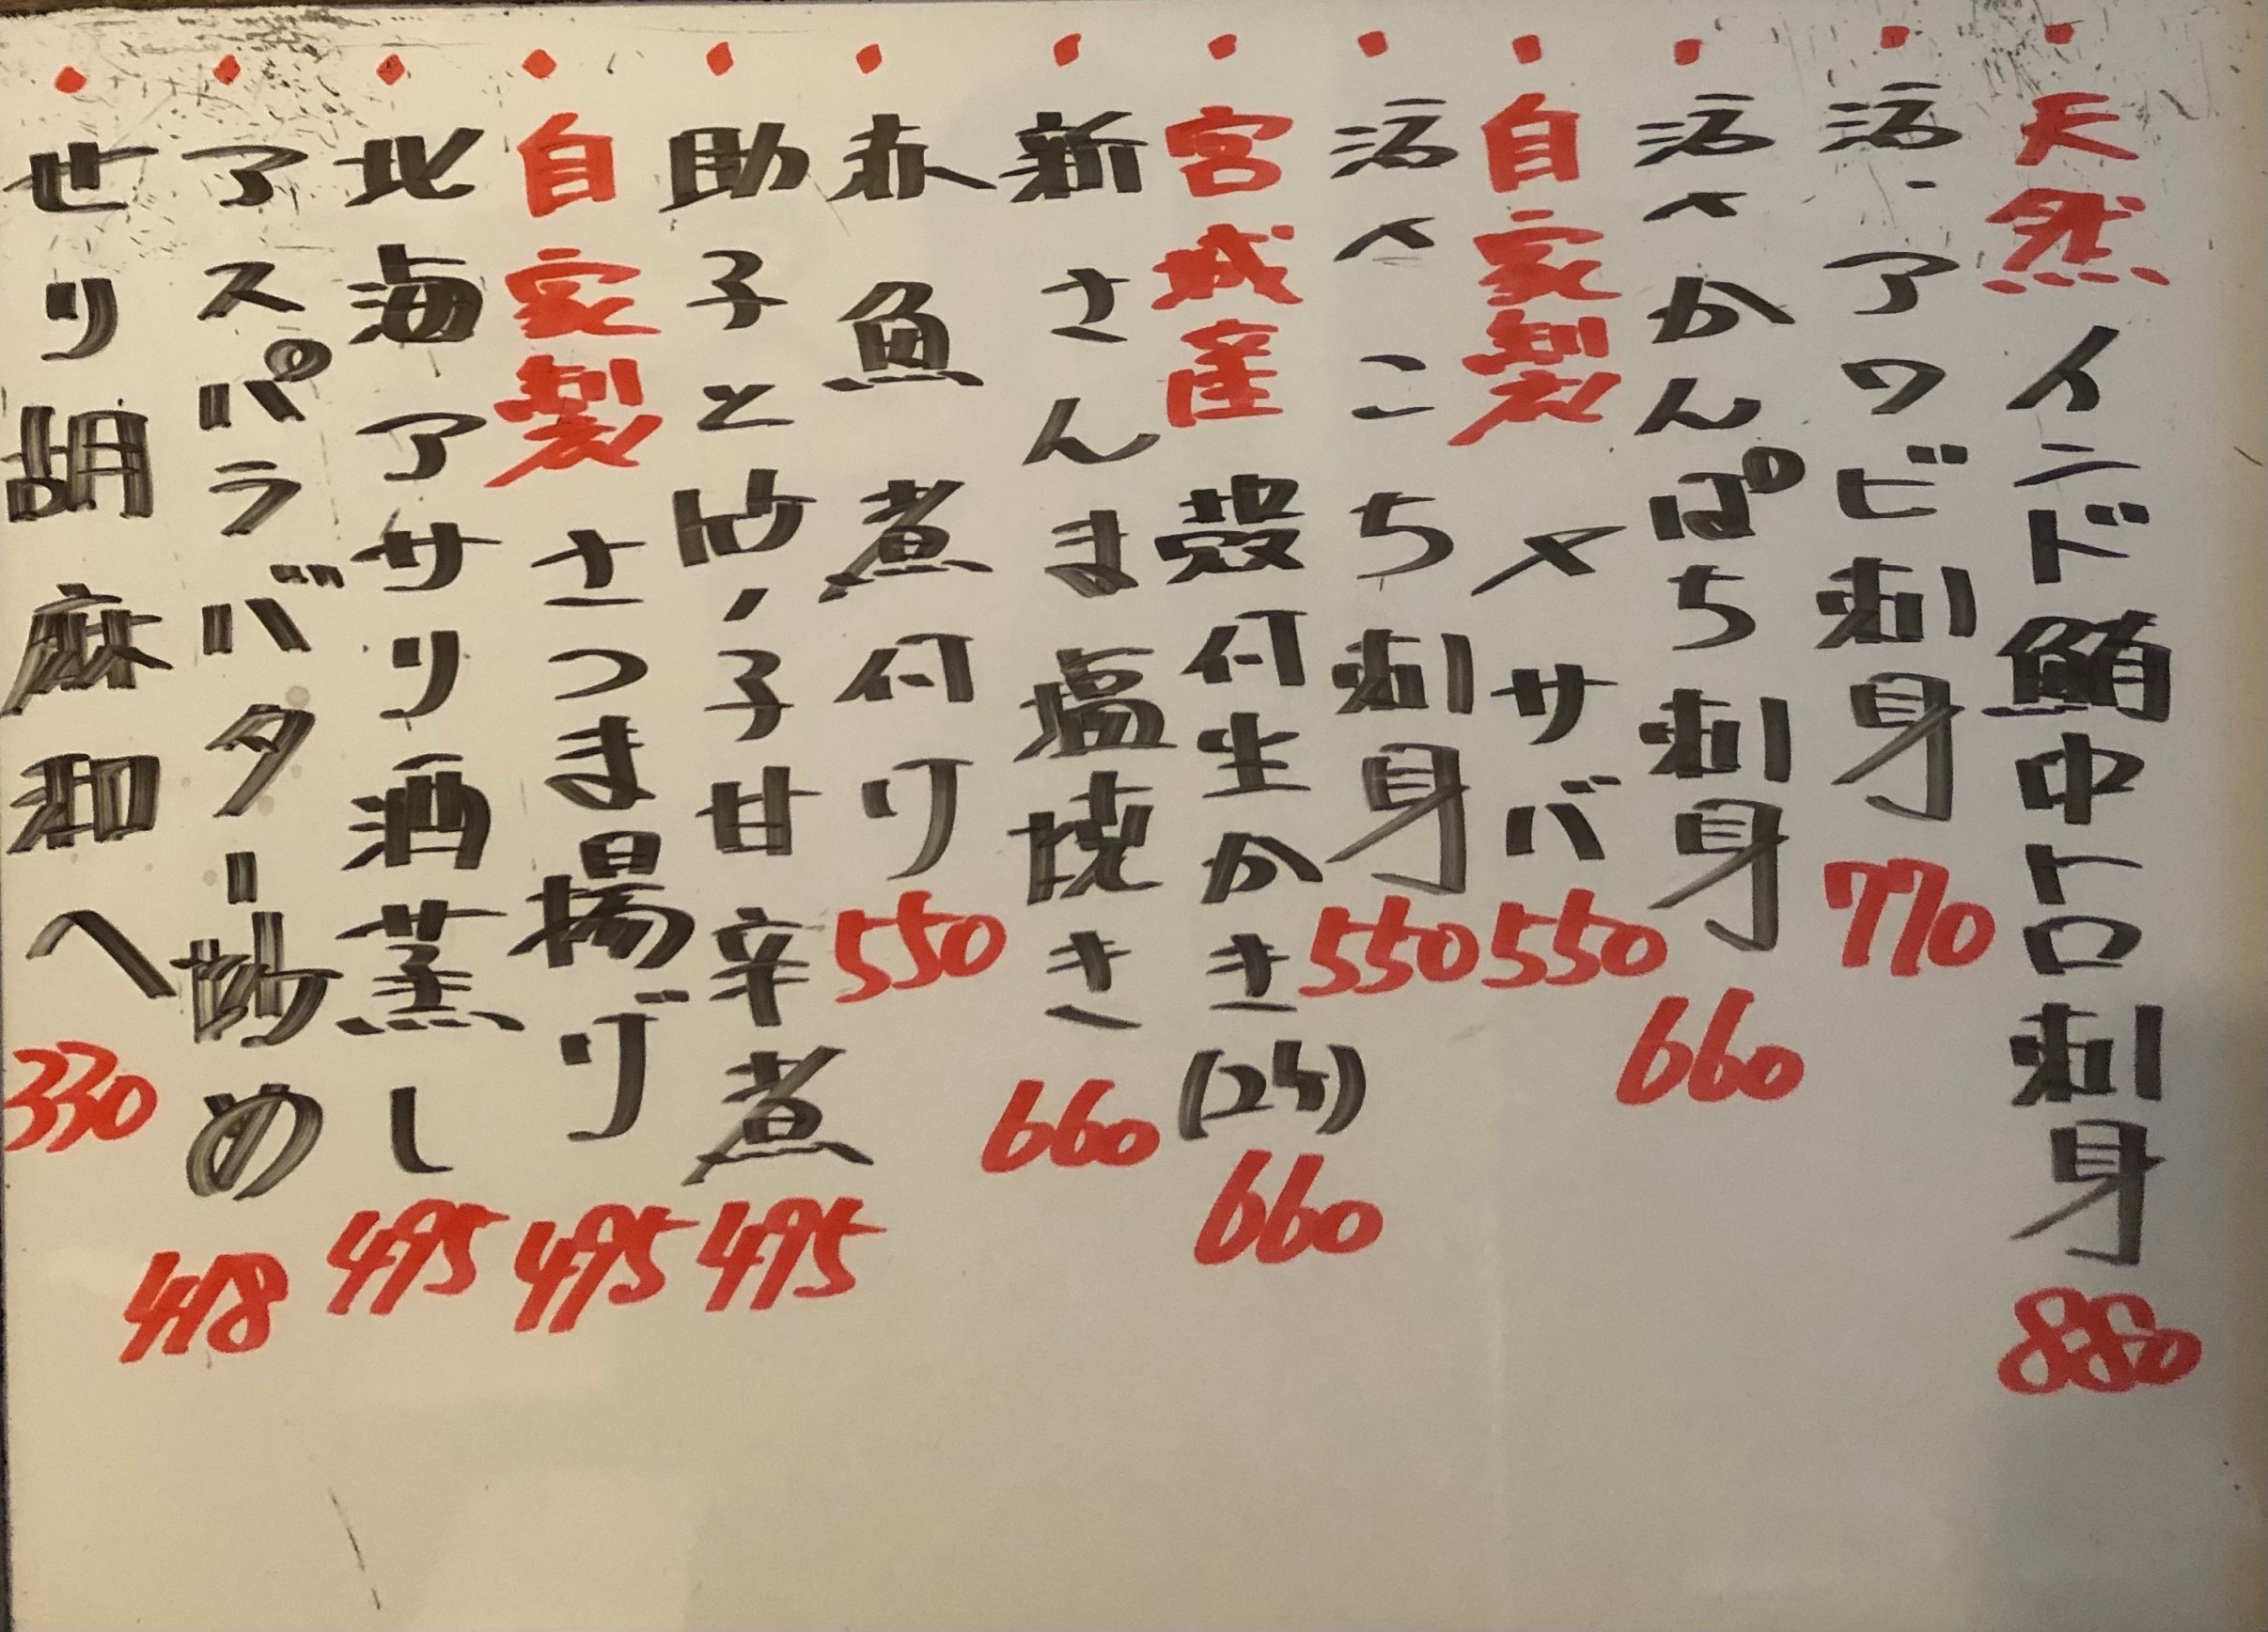 ・天然インド鮪中トロ刺身 880
・活アワビ刺身 770
・活〆かんぱち刺身 660
・自家製〆サバ 550
・活〆こち刺身 550
・宮城産殻付生かき(2ケ) 660
・新さんま塩焼き 660
・赤魚煮付け 550
・助子と竹ノ子甘辛煮 495
・自家製さつま揚げ 495
・北海アサリ酒蒸し 495
・アスパラバター炒め 418
・せり胡麻和へ 330